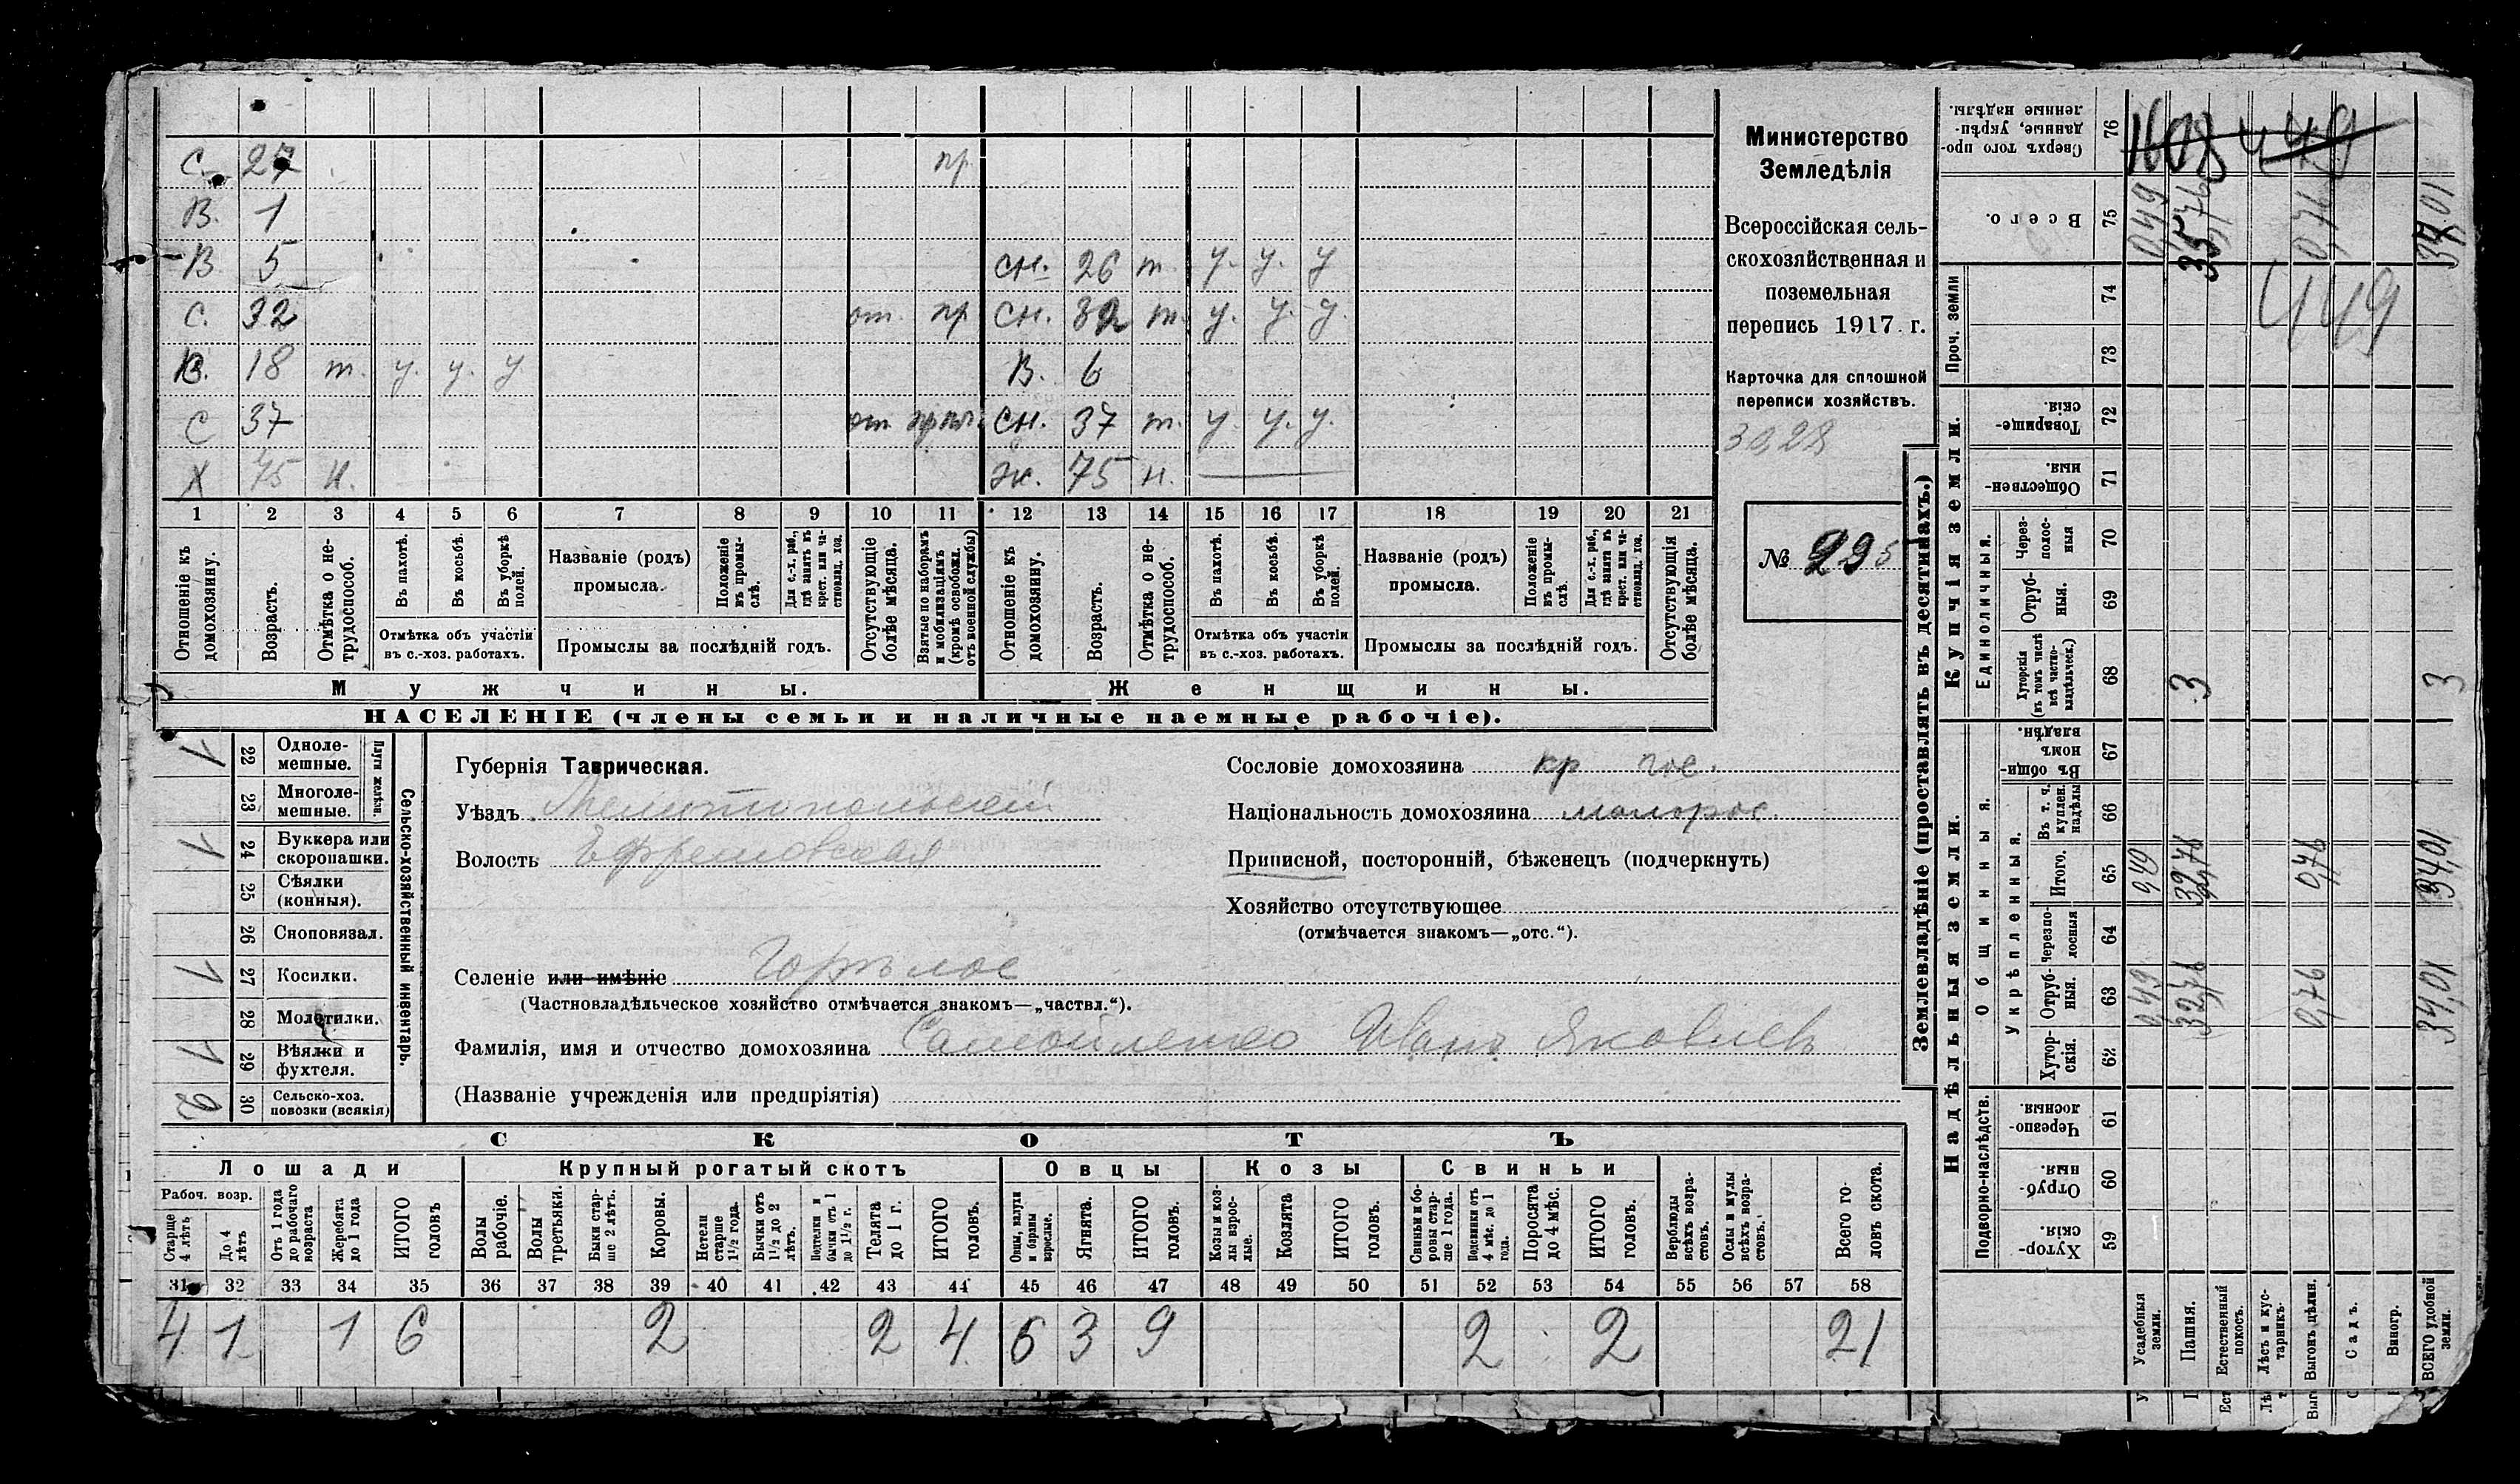 С. 27 пр.
В. 1
В 5 сн. 26 т. у. у. у
С. 32 от. пр сн. 32 т. у. у. у.
В. 18 т. у. у. у В. 6
С 37 от. сн. 37 т. у. у. у.
Х 75 н. ж. 75 н.
1 2 3 4 5 6 7 8 9 10 11 12 13 14 15 16 17 18 19 20 21
Отношеніе къ домохозяину.
Возрастъ.
Отмѣтка о не-трудоспособ.
Въ пахотѣ.
Въ косьбѣ.
Въ уборкѣ полей.
Отмѣтка объ участіи
въ с.-хоз. работахъ.
Названіе (родъ)
промысла.
Положеніе въ промы-слѣ.
Для с.-х. раб., гдѣ занятъ въ крест. или ча-стновлад. хоз.
Промыслы за послѣдній годъ.
Отсутствующіе болѣе мѣсяца.
Взятые по наборамъ и мобилизаціямъ (кромѣ освобожд. отъ военной службы)
Отношеніе къ домохозяину.
Возрастъ.
Отмѣтка о не-трудоспособ.
Въ пахотѣ.
Въ косьбѣ.
Въ уборкѣ полей.
Отмѣтка объ участіи
въ с.-хоз. работахъ.
Названіе (родъ)
промысла.
Положеніе въ промы-слѣ.
Для с.-х. раб., гдѣ занятъ въ крест. или ча-стновлад. хоз.
Промыслы за послѣдній годъ.
Отсутствующія болѣе мѣсяца.
Мужчины. Женщины.
НАСЕЛЕНІЕ (члены семьи и наличные наемные рабочіе).
Министерство
Земледѣлія
Всероссійская сель-
скохозяйственная и
поземельная
перепись 1917 г.
Карточка для сплошной
переписи хозяйствъ.
30,28
№ 295
1 22 Одноле-мешные.
23 Многоле-мешные.
Плуги желѣзн.
1 24 Буккера или скоропашки.
25 Сѣялки (конныя).
26 Сноповязал.
1 27 Косилки.
28 Молотилки.
1 29 Вѣялки и фухтеля.
2 30 Сельско-хоз. повозки (всякія)
Сельско-хозяйственный инвентарь.
Губернія Таврическая.
Уѣздъ Мелитопольскій
Волость Ефремовская
Селеніе или имѣніе Горѣлое
(Частновладѣльческое хозяйство отмѣчается знакомъ—„частвл.“).
Фамилія, имя и отчество домохозяина Самойленко Иванъ Яковлевъ
(Названіе учрежденія или предпріятія)
Сословіе домохозяина кр гос.
Національность домохозяина малорос.
Приписной, посторонній, бѣженецъ (подчеркнуть)
Хозяйство отсутствующее
(отмѣчается знакомъ—„отс.“).
СКОТЪ
Лошади Крупный рогатый скотъ Овцы Козы Свиньи
Рабоч. возр.
Старше 4 лѣтъ
До 4 лѣтъ
Отъ 1 года до рабочаго возраста
Жеребята до 1 года
ИТОГО головъ
Волы рабочіе.
Волы третьяки.
Быки стар-ше 2 лѣтъ.
Коровы.
Нетели старше 1½ года.
Бычки отъ 1½ до 2 лѣтъ.
бычки отъ 1 до 1½ г.
Телята до 1 г.
ИТОГО головъ.
Овцы, валухи и бараны взрослые.
Ягнята.
ИТОГО головъ.
Козы и коз-лы взрос-лые.
Козлята
ИТОГО головъ.
Свиньи и бо-ровы стар-ше 1 года.
Подсвинки отъ 4 мѣс. до 1 года.
Поросята до 4 мѣс.
ИТОГО головъ.
Верблюды всѣхъ возра-стовъ.
Ослы и мулы всѣхъ возра-стовъ.
Всего го-ловъ скота.
31 32 33 34 35 36 37 38 39 40 41 42 43 44 45 46 47 48 49 50 51 52 53 54 55 56 57 58
4 1 1 6 2 2 4 6 3 9 2 2 21
Землевладѣніе (проставлять въ десятинахъ.)
Надѣльныя земли. Купчія земли.
Подворно-наслѣдств.
Общинныя.
Укрѣпленныя.
Единоличныя.
Проч. земли
Сверхъ того про-данные, укрѣп-ленные надѣлы. 76 1608 449
Всего. 75 0,49 35,76 0,76 37,01
74 449
73
Товарище-скія. 72
Обществен-ныя. 71
Через-полос-ныя 70
Отруб-ныя. 69
Хуторскія (въ томъ числѣ всѣ частно-владѣльческ.) 68 3 3
Въ общин-номъ владѣн. 67
Въ т. ч. куплен. надѣлы 66
Итого. 65 0,49 32,76 0,76 34,01
Черезпо-лосныя 64
Отруб-ныя. 63 0,49 32,76 0,76 34,01
Хутор-скія. 62
Черезпо-лосныя. 61
Отруб-ныя. 60
Хутор-скія. 59
Усадебныя земли.
Пашня.
Естественный покосъ.
Лѣсъ и кус-тарникъ.
Выгонъ цѣлин.
Садъ.
Виногр.
ВСЕГО удобной земли.